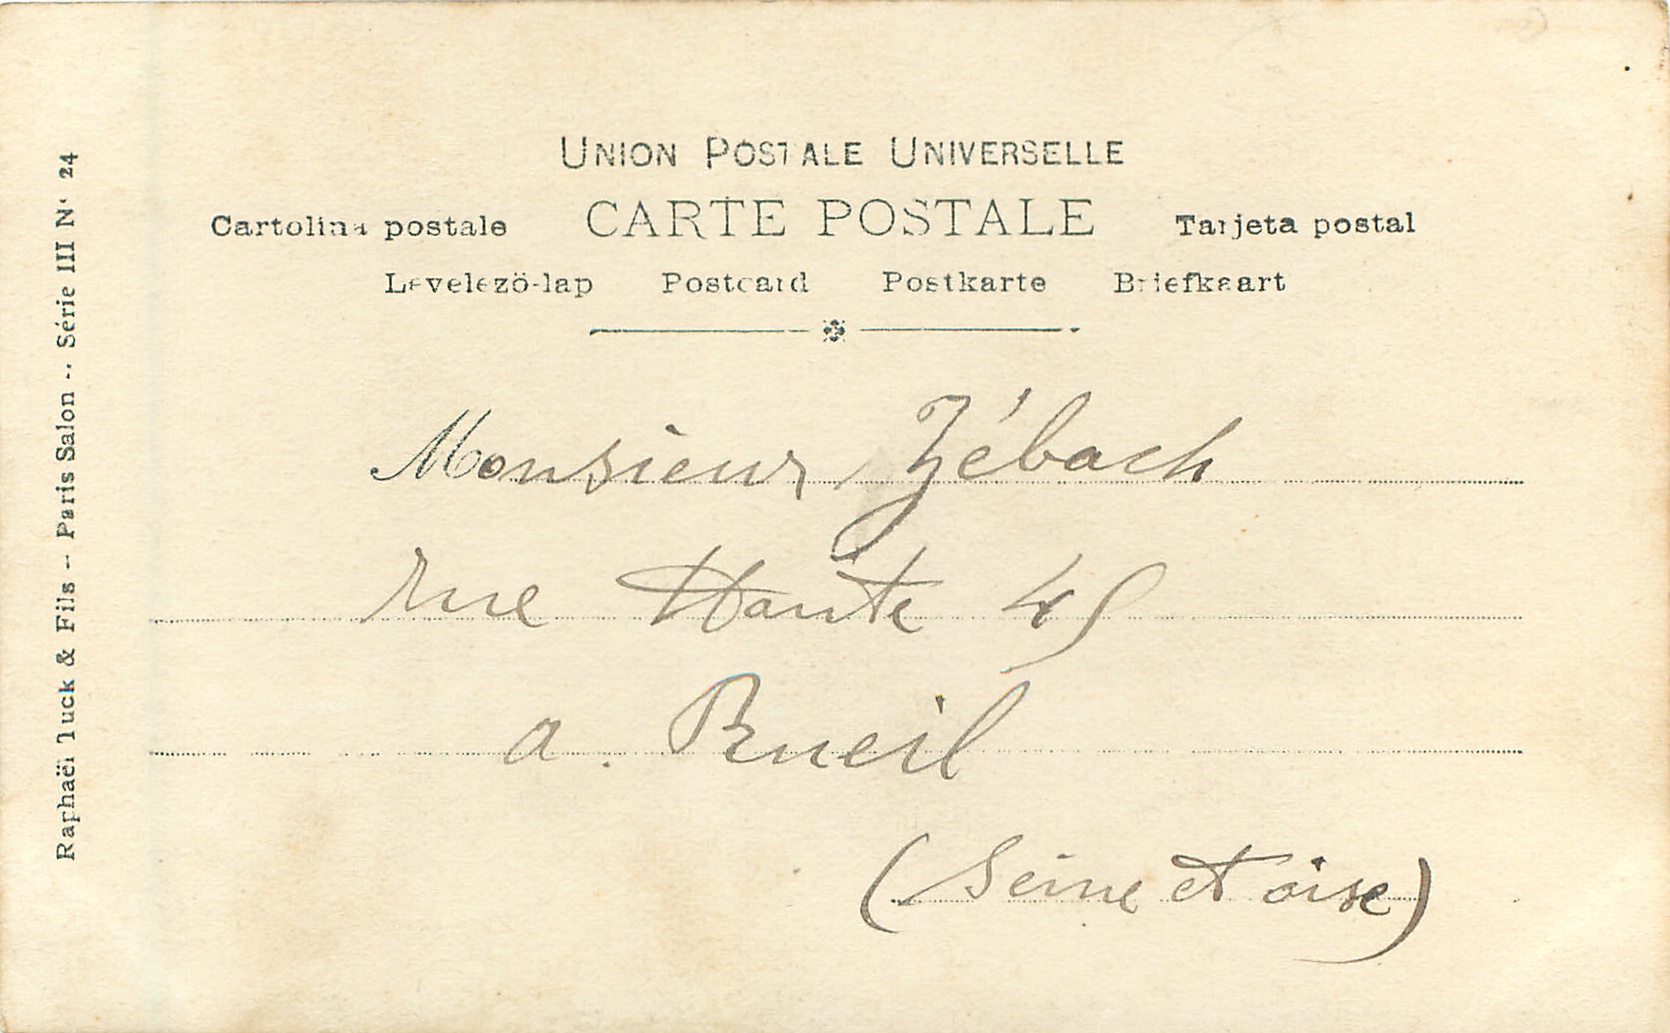 UNION POSTALE UNIVERSELLE
Cartolina postale CARTE POSTALE Tarjeta postal
Levelezö-lap Postcard Postkarte Briefkaart
Monsieur Zébach
rue Haute 45
a Rueil
(Seine et oise)
Raphaël Tuck & Fils -- Paris Salon -- Série III N° 24